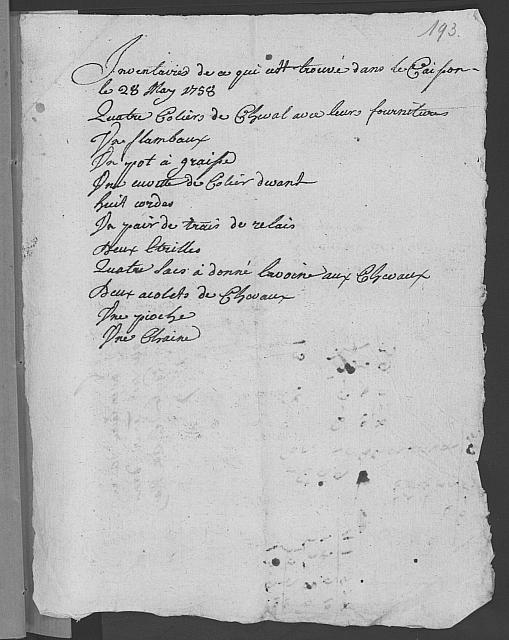 193.
Inventaires de ce qui cest trouvé dans le Caison
le 28 May 1758
Quatre Coliers de Cheval avec leurs fournitures
Un flambaux
Un pot à graisse
Une de Colier dvant
huit cordes
Un pair de trais de relais
Deux Etrilles
Quatre sacs à donné lavoine aux Chevaux
Deux acolets de Chevaux
Une pioche
Une Chaine